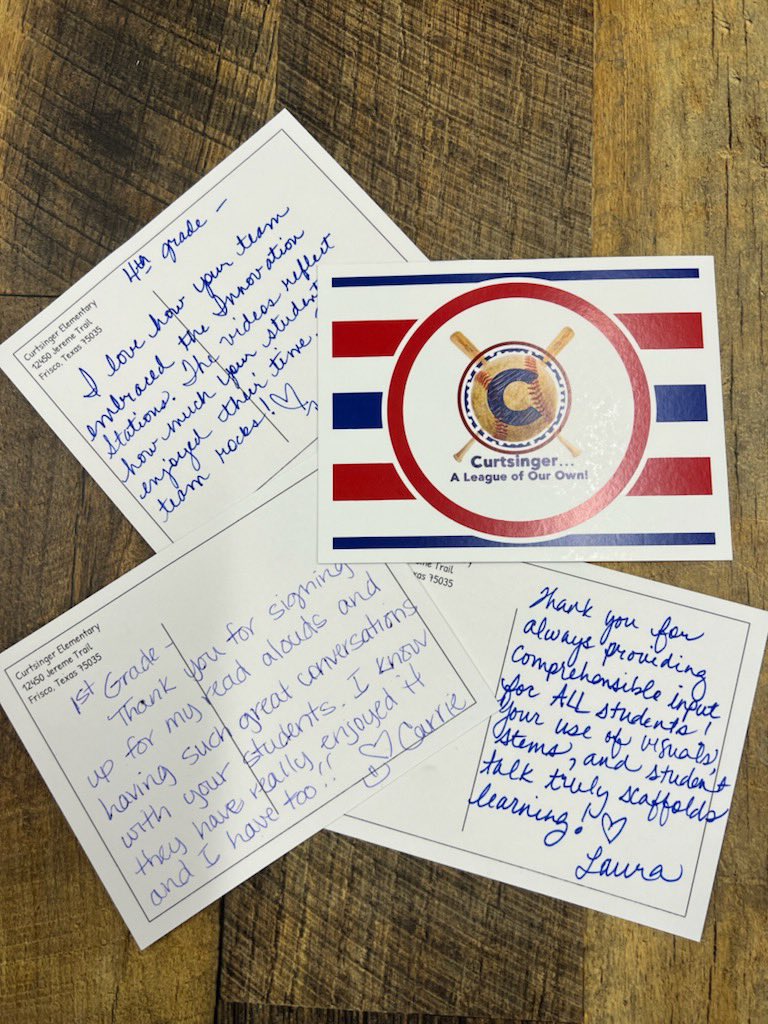 Curtsinger Elementary
12450 Jereme Trail
Frisco, Texas 75035
4th grade -
I love how your team
embraced the Innovation
Stations. The videos reflect
how much your student
enjoyed their time
team rocks! ♡
C
Curtsinger...
A League of Our Own!
Curtsinger Elementary
12450 Jereme Trail
Frisco, Texas 75035
1st Grade -
Thank you for signing
up for my read alouds and
having such great conversations
with your students. I know
they have really enjoyed it
and I have too!! ♡ Carrie
Trail
as 75035
Thank you for
always providing
comprehensible input
for ALL students!
Your use of visuals,
stems, and student
talk truly scaffolds
learning! ♡
Laura